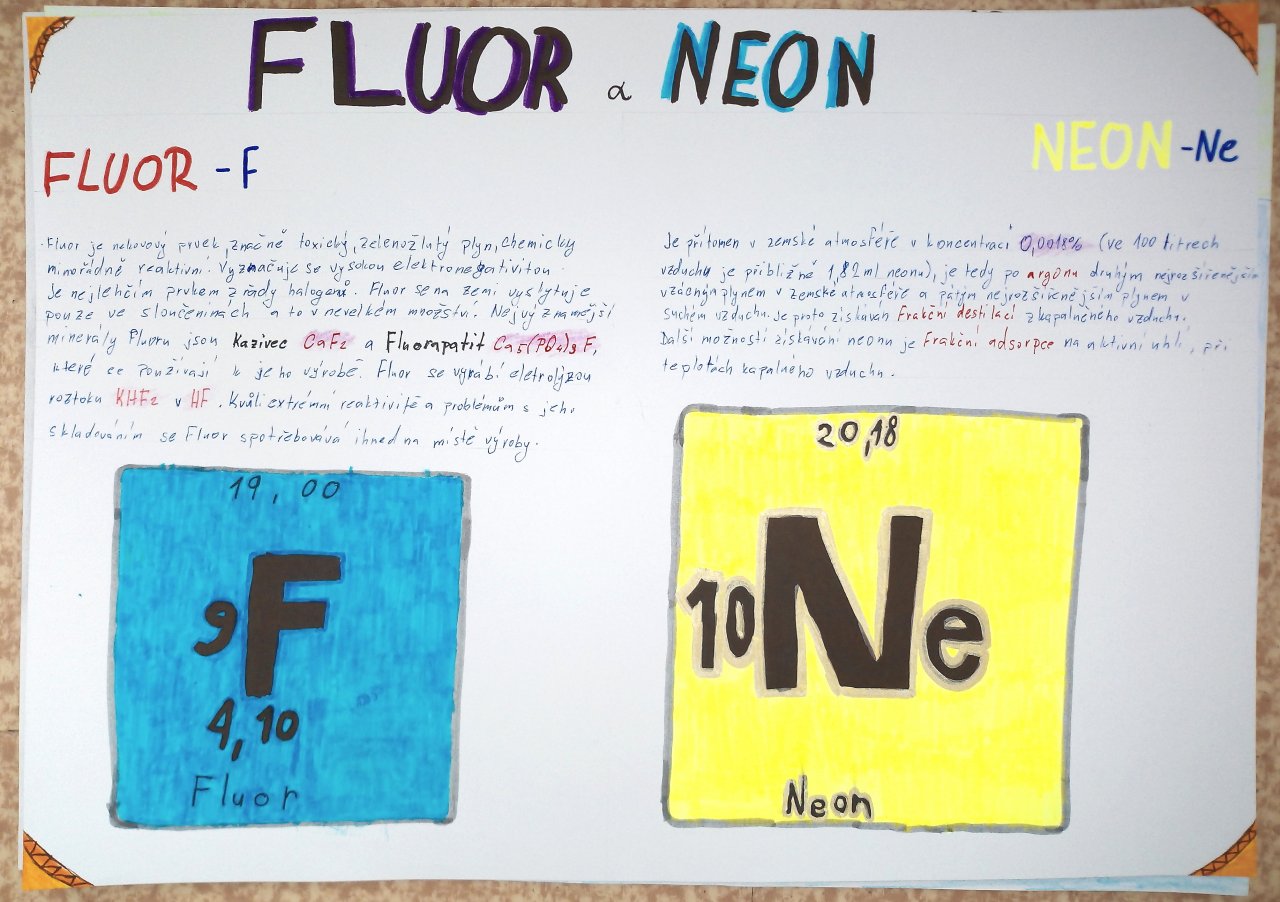 FLUOR a NEON
FLUOR - F
Fluor je nekovový prvek, značně toxický, zelenožlutý plyn, chemicky
mimořádně reaktivní. Vyznačuje se vysokou elektronegativitou.
Je nejlehčím prvkem z řády halogenů. Fluor se na zemi vyskytuje
pouze ve sloučeninách a to v nevelkém množství. Nejvýznamější
minerály Fluoru jsou Kazivec CaF2 a Fluorapatit Ca5(PO4)3F,
které se používají k jeho výrobě. Fluor se vyrábí eletrolýzou
roztoku KHF2 v HF. Kvůli extrémní reaktivitě a problémům s jeho
skladováním se Fluor spotřebovává ihned na místě výroby.
19,00
9 F
4,10
Fluor
NEON - Ne
Je přítomen v zemské atmosféře v koncentraci 0,0018% (ve 100 litrech
vzduchu je přibližně 1,82 ml neonu), je tedy po argonu druhým nejrozšířenějším
vzácným plynem v zemské atmosféře a pátým nejrozšířenějším plynem v
suchém vzduchu. Je proto získáván Frakční destilací zkapalněného vzduchu.
Další možností získávání neonu je Frakční adsorpce na aktivní uhlí, při
teplotách kapalného vzduchu.
20,18
10 Ne
Neon